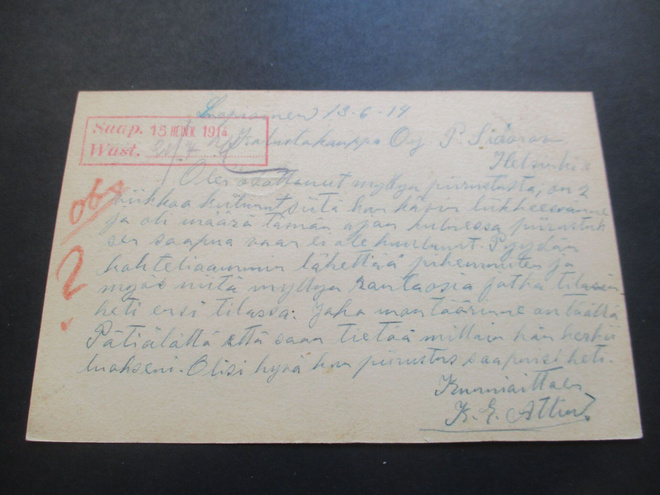 13-6-14
Saap. 15 HEINÄK 1914
Wast.
Kalustokauppa Oy P. Sidorow
Helsinki
obs
?
Olen odottanut myllyn piirustusta, on 2
viikkoa kulunut siitä kun kävin liikkeessänne
ja oli määrä tämän ajan kuluessa piirustuk
sen saapua vaan ei ole kuulunut. Pyydän
kohteliaammin lähettää pikemmiten ja
myös niitä myllyn rautaosia jotka tilasin
heti ensi tilassa. Joko montöörinne on täällä
Pätiälällä että saan tietää milloin hän
luokseni. Olisi hyvä kun piirustus saapuisi heti.
Kunnioittaen
K. E.